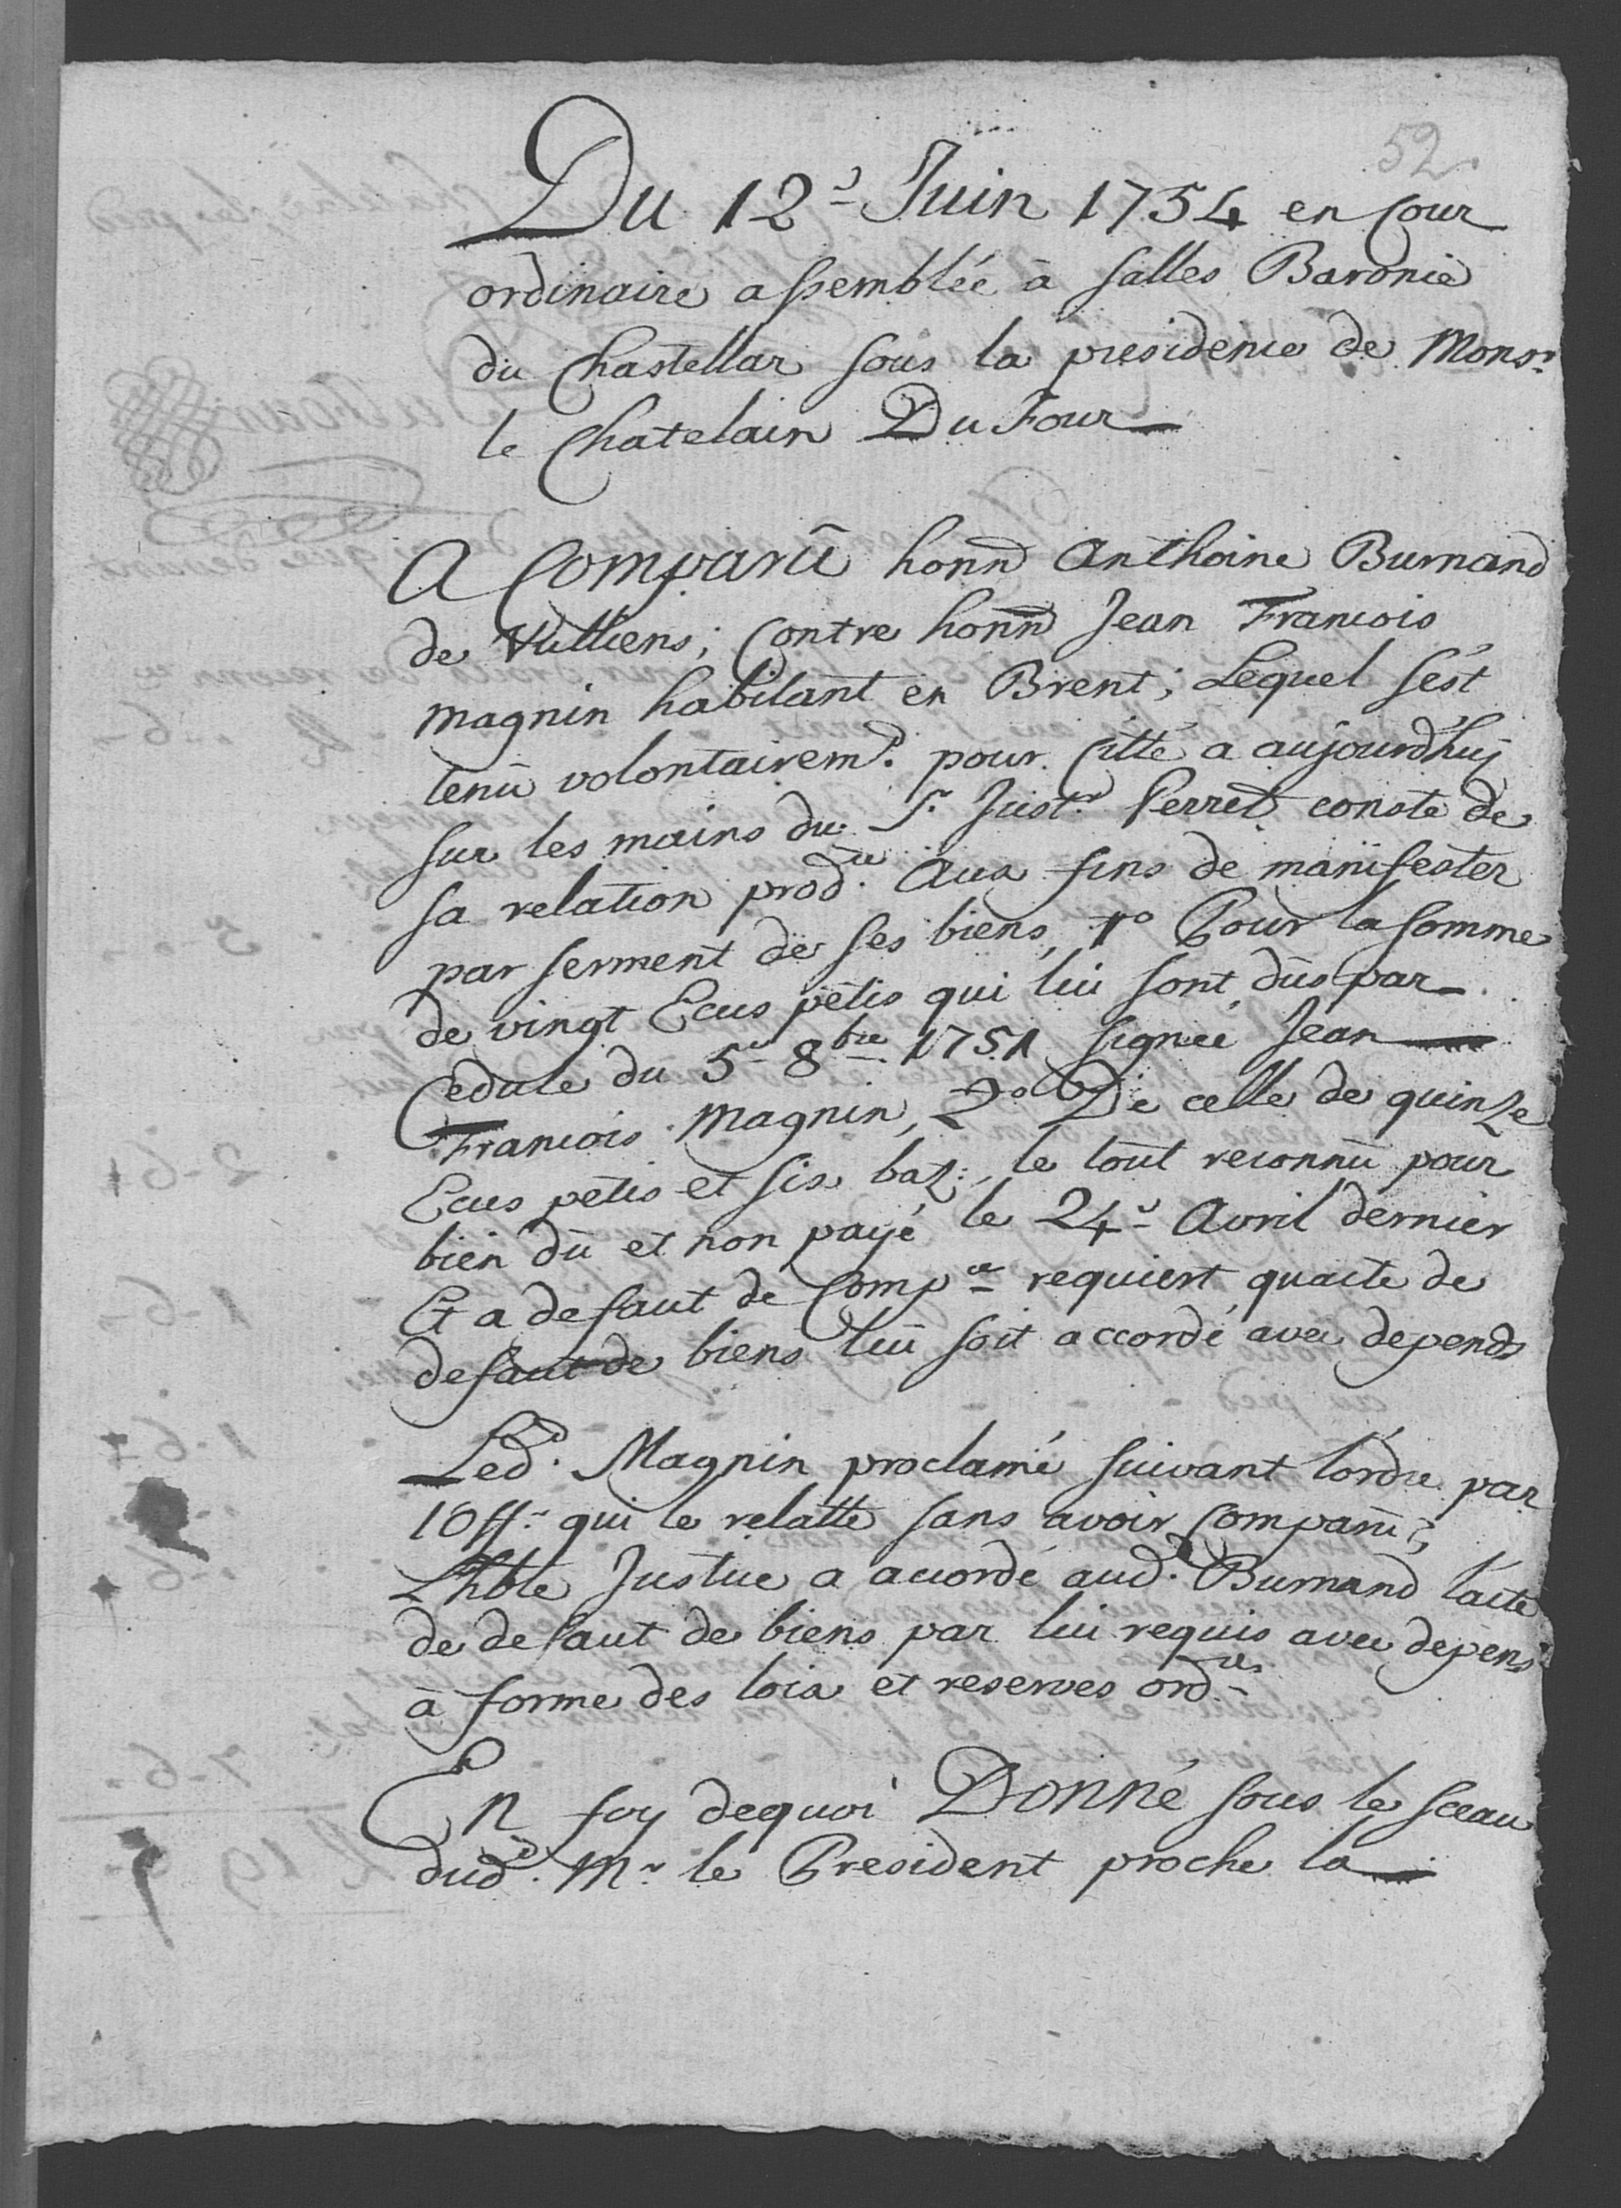 52
Du 12e Juin 1754 en Cour
ordinaire assemblée à Salles Baronie
du Chastellar sous la presidence de Monsr.
le Chatelain DuFour
A Comparû honnd Anthoine Burnand
de Vulliens; Contre honnd Jean Francois
Magnin habitant en Brent; Lequel s'est
tenû volontairemt. pour Citté a aujourd'huy
sur les mains du Sr. Justr. Perret conste de
sa relation prodte. Aux fins de manifester
par serment de ses biens, 1o Pour la somme
de vingt Ecus petis qui lui sont dûs par
Cedule du 5e 8bre 1751 signée Jean
Francois Magnin, 2o De celle de quinze
Ecus petis et six batz: le tout reconnû pour
bien dû et non payé le 24e Avril dernier
Et a defaut de Compce requiert qu'acte de
defaut de biens lui soit accordé avec depends
Led. Magnin proclamé suivant l'ordre par
l'Off: qui le relatte sans avoir Comparû;
L'hble Justice a accordé aud. Burnand l'acte
de defaut de biens par lui requis avec depens
à forme des loix et reserves ordres
En foy dequoi Donné sous le sceau
dud. Mr. le President proche la